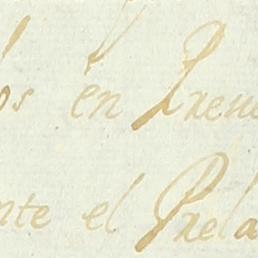 os en Pren
nte el Prela